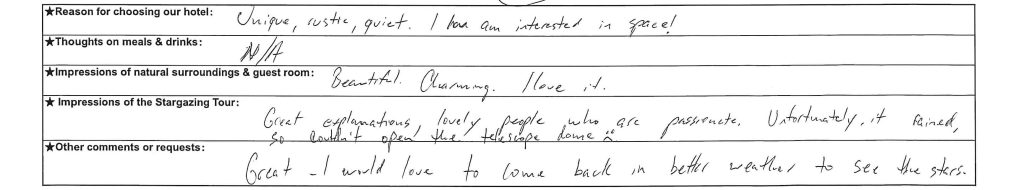 ★Reason for choosing our hotel: Unique, rustic, quiet. I am interested in space!
★Thoughts on meals & drinks: N/A
★Impressions of natural surroundings & guest room: Beautiful. Charming. I love it.
★ Impressions of the Stargazing Tour: Great explanations, lovely people who are passionate. Unfortunately, it rained,
so couldn't open the telescope dome
★Other comments or requests: Great - I would love to come back in better weather to see the stars.